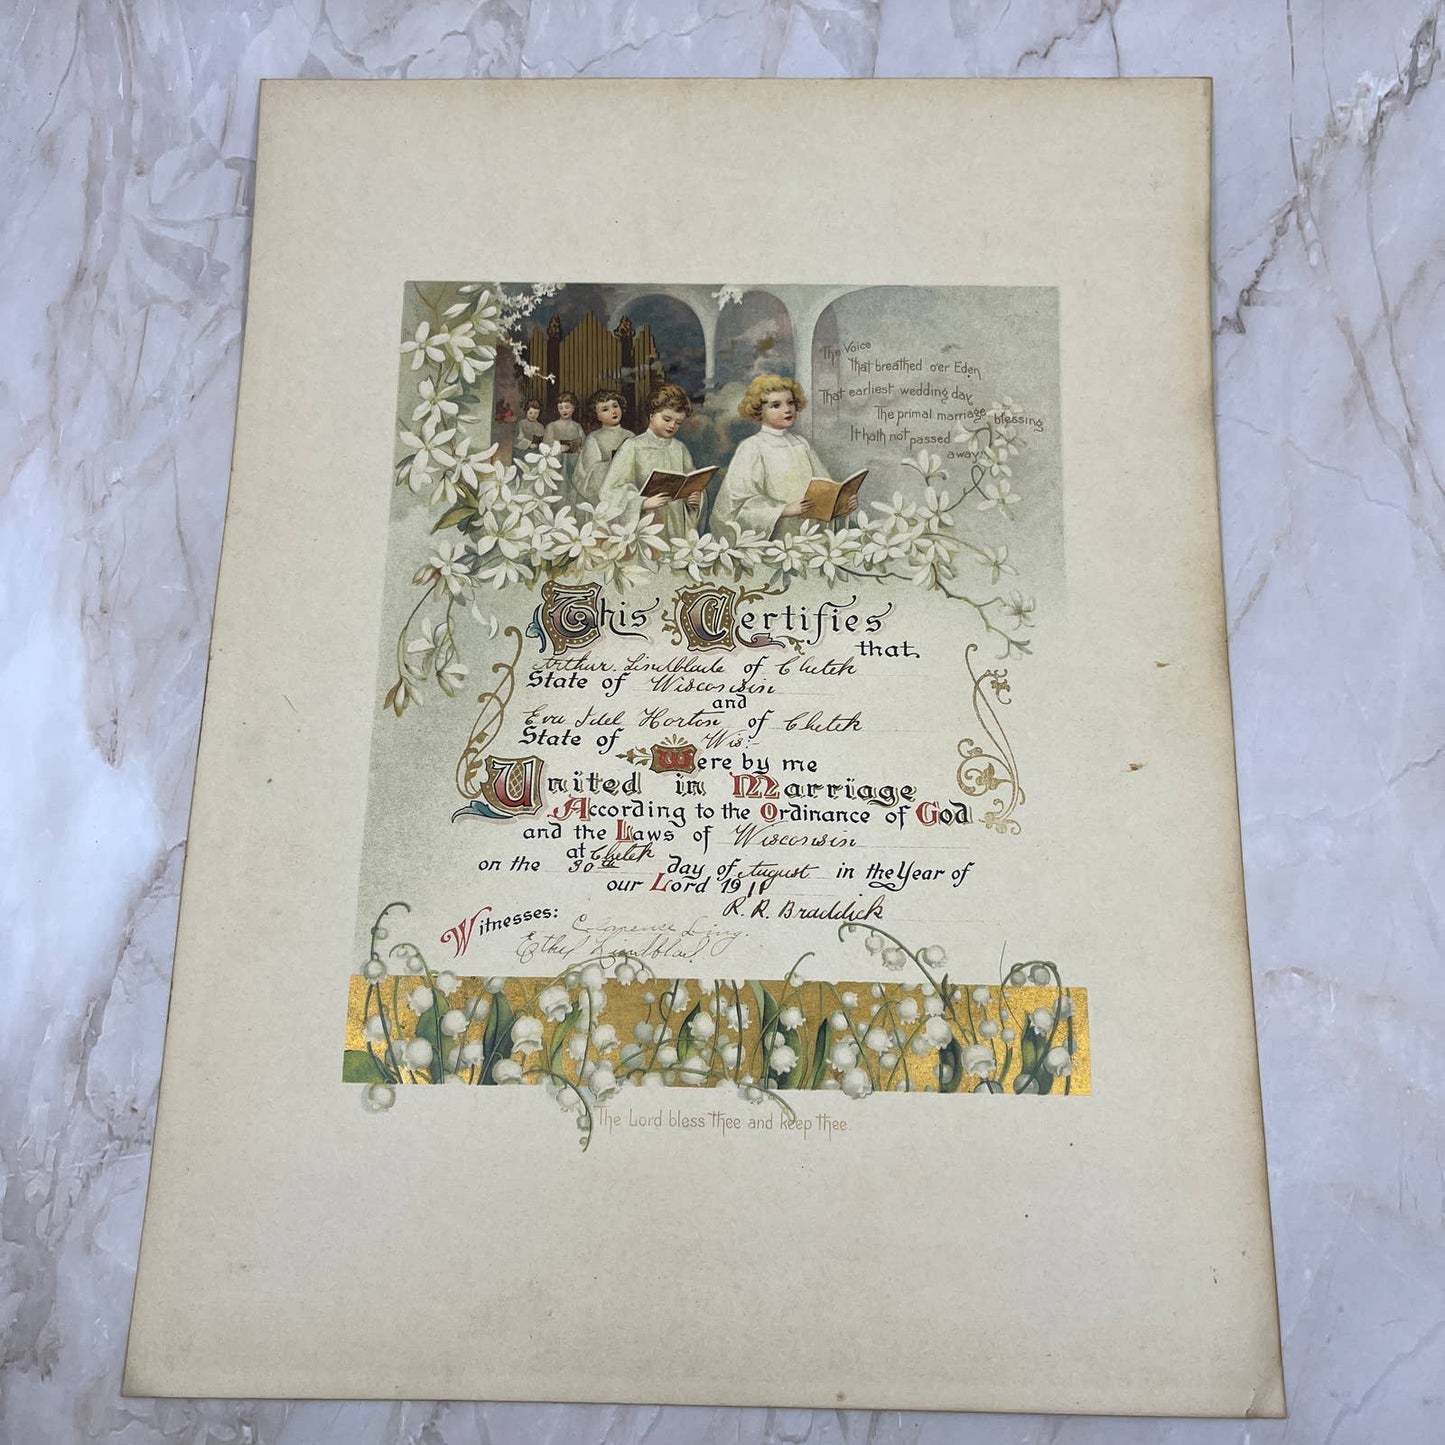 The Voice
that breathed o'er Eden,
That earliest wedding day,
The primal marriage blessing
It hath not passed
away.
This Certifies
that
Arthur Lindblade of Chetek
State of Wisconsin
and
Eva Idel Horton of Chetek
State of Wis:
Were by me
United in Marriage
According to the Ordinance of God
and the Laws of Wisconsin
at Chetek
on the 30th day of August in the Year of
our Lord 1911
R. R. Braddick
Witnesses:
Clarence
Ethel Lindblad
The Lord bless thee and keep thee.